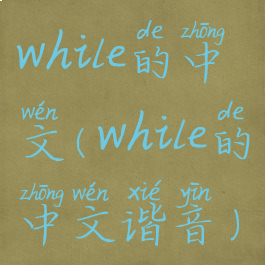 de zhōng
while的中
wén de
文(while的
zhōng wén xié yīn
中文谐音)